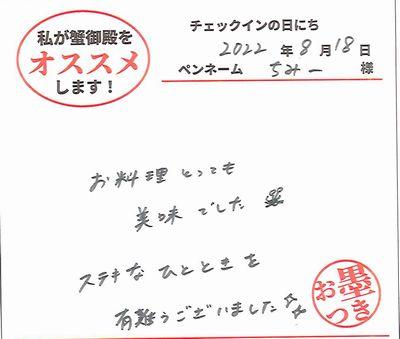 私が蟹御殿を
オススメ
します！
チェックインの日にち
2022 年 8 月 18 日
ペンネーム ちみー 様
お料理 とっても
美味でした
ステキな ひとときを
有難うございました☆☆
お墨つき